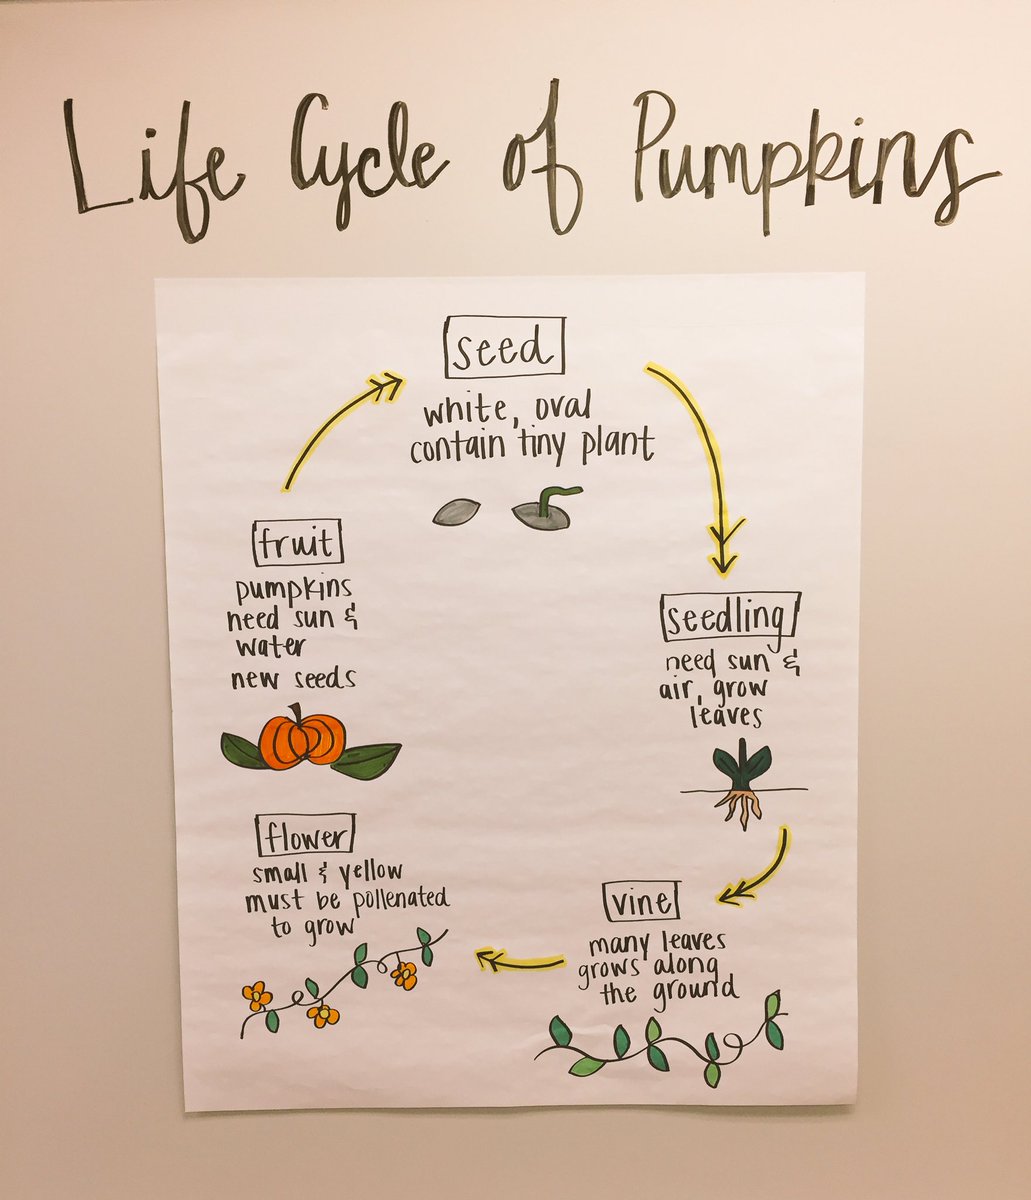 Life Cycle of Pumpkins
seed
white, oval
contain tiny plant
seedling
need sun &
air, grow
leaves
vine
many leaves
grows along
the ground
flower
small & yellow
must be pollenated
to grow
fruit
pumpkins
need sun &
water
new seeds